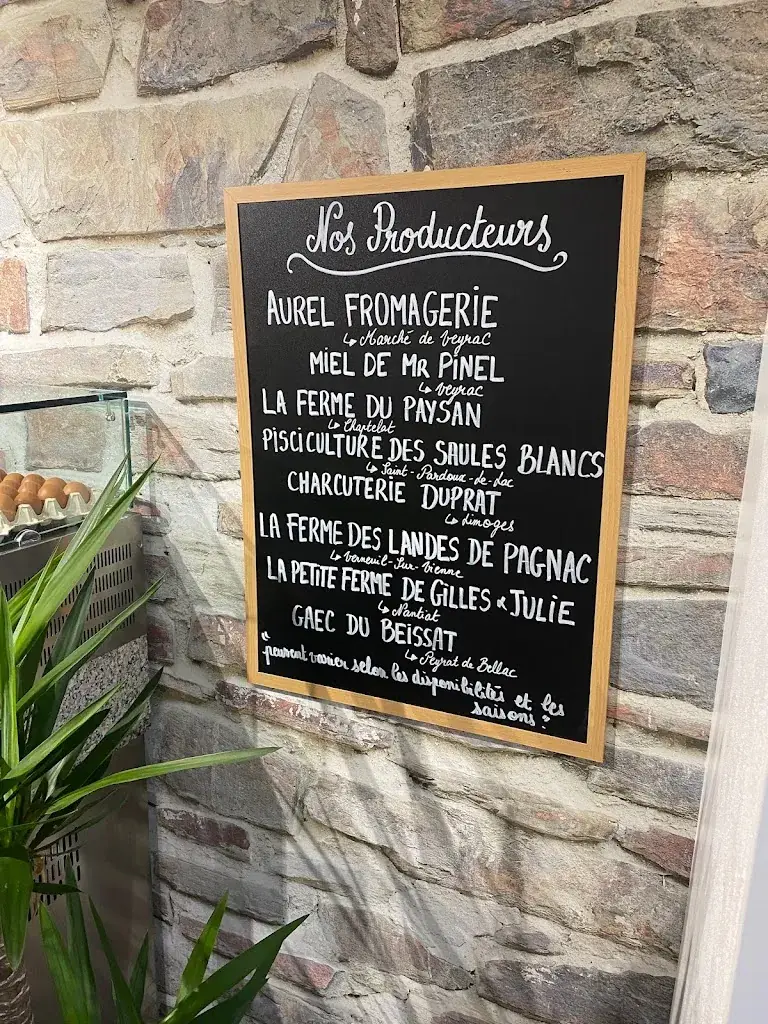 Nos Producteurs
AUREL FROMAGERIE
↳ Marché de Veyrac
MIEL DE MR PINEL
↳ Veyrac
LA FERME DU PAYSAN
↳ Chaptelat
PISCICULTURE DES SAULES BLANCS
↳ Saint-Pardoux-le-Lac
CHARCUTERIE DUPRAT
↳ Limoges
LA FERME DES LANDES DE PAGNAC
↳ Verneuil-Sur-Vienne
LA PETITE FERME DE GILLES & JULIE
↳ Nantiat
GAEC DU BEISSAT
↳ Peyrat de Bellac
"peuvent varier selon les disponibilités et les
saisons"